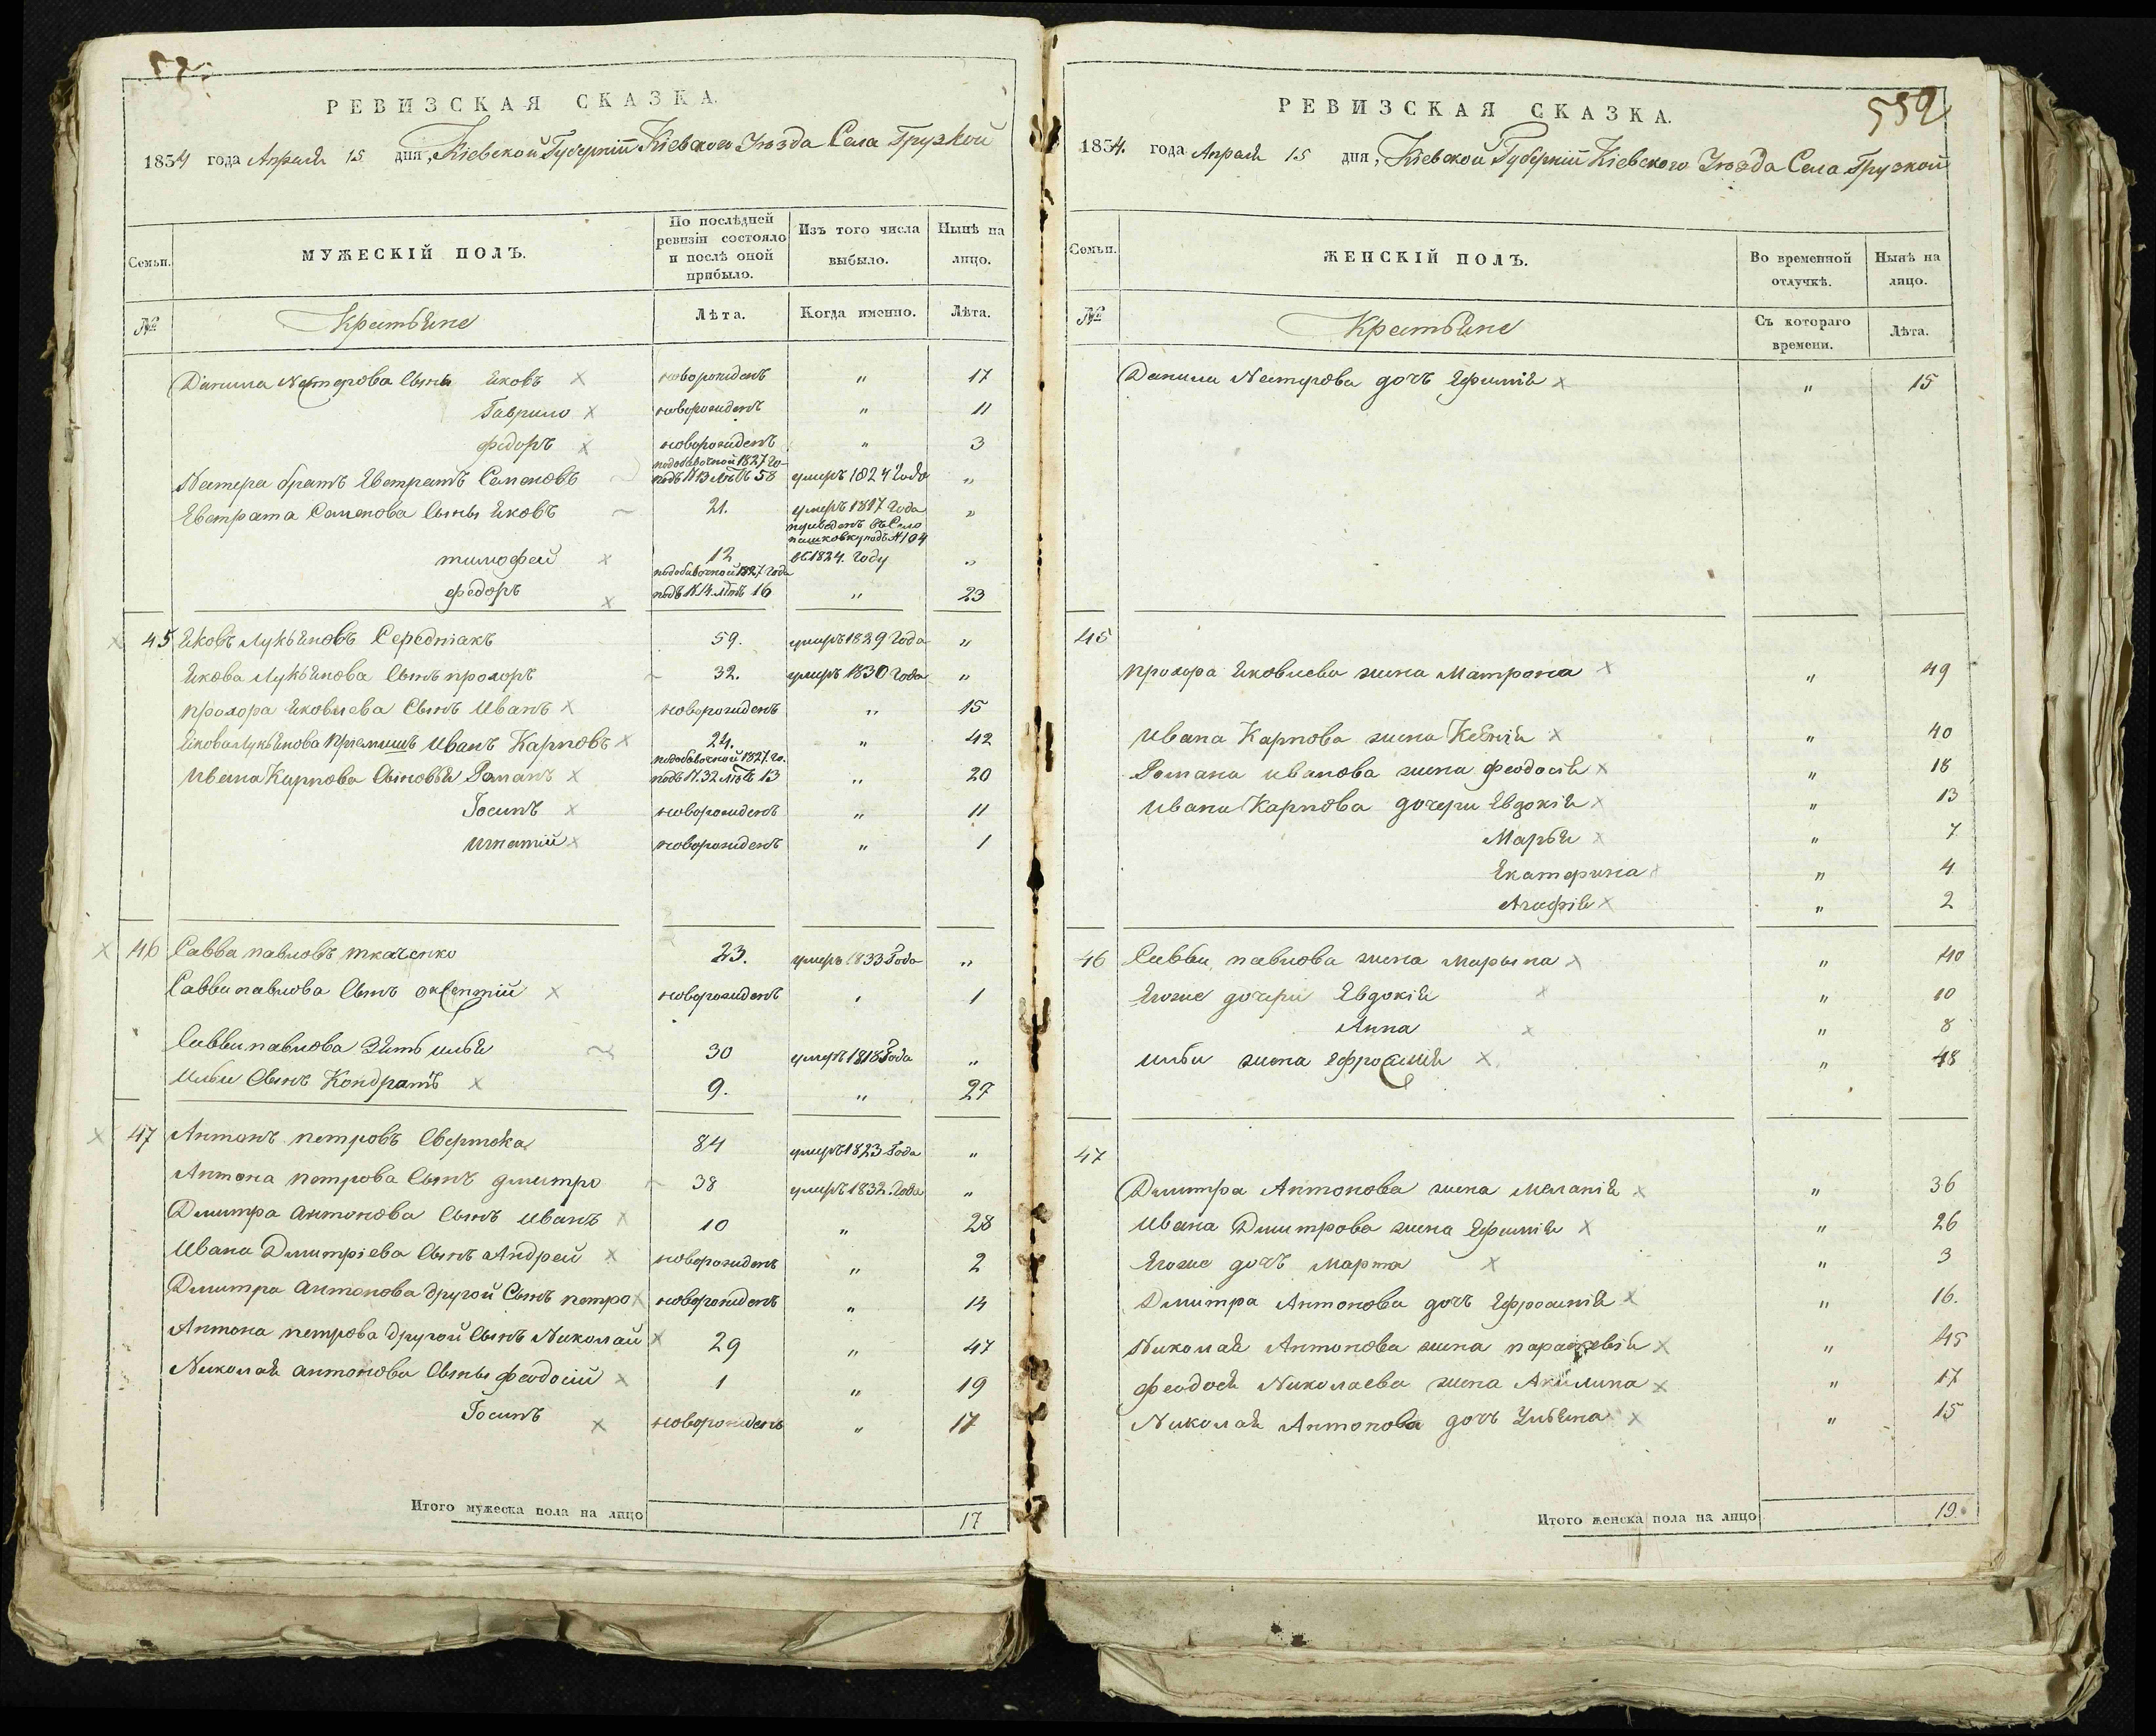 РЕВИЗСКАЯ СКАЗКА.
1834 года Апреля 15 дня, Кіевской Губерніи Кіевского Уѣзда Села Грузкой
Семьи.
МУЖЕСКІЙ ПОЛЪ.
По послѣдней ревизіи состояло и послѣ оной прибыло.
Изъ того числа выбыло.
Нынѣ на лицо.
№
Крестьяне
Лѣта.
Когда именно.
Лѣта.
Данила Нестерова Сыны Яковъ новорожденъ " 17
Гаврило новорожденъ " 11
федоръ новорожденъ " 3
подобавочной 1827 го-
Нестера братъ Евстратъ Семеновъ подъ N 13 лѣтъ 58 умеръ 1824 года "
Евстрата Семенова Сыны Яковъ 21. умеръ 1817 Года "
переведенъ въ Село
пашковку подъ N 104
тимофей 12 въ 1824. Году "
подобавочной 1827 года
федоръ подъ N 14 лѣтъ 16 " 23
45 Яковъ Лукьяновъ Середнiакъ 59. умеръ 1829 Года "
Якова Лукьянова Сынъ прохоръ 32. умеръ 1830 Года "
прохора Яковлева Сынъ Иванъ новорожденъ " 15
Якова Лукьянова Пріемышъ Иванъ Карповъ 24. " 42
подобавочной 1827. го.
Ивана Карпова Сыновья Романъ подъ N. 32 лѣтъ 13 " 20
Іосипъ новорожденъ " 11
игнатій новорожденъ " 1
46 Савва павловъ ткаченко 23. умеръ 1833 Года "
Саввы павлова Сынъ оксентій новорожденъ " 1
Саввы павлова Зять илья 30 умеръ 1818 Года "
Ильи Сынъ Кондратъ 9. " 27
47 Антонъ петровъ Свертока 84 умеръ 1823 Года "
Антона петрова Сынъ дмитро 38 умеръ 1832. Года "
Дмитра антонова Сынъ Иванъ 10 " 28
Ивана Дмитріева Сынъ Андрей новорожденъ " 2
Дмитра антонова другой Сынъ петро новорожденъ " 14
Антона петрова другой Сынъ Николай 29 " 47
Николая антонова Сыны феодосій 1 " 19
Іосипъ новорожденъ " 17
Итого мужеска пола на лицо 17
РЕВИЗСКАЯ СКАЗКА.
552
1834. года Апреля 15 дня, Кіевской Губерніи Кіевского Уѣзда Села Грузкой
Семьи.
ЖЕНСКІЙ ПОЛЪ.
Во временной отлучкѣ.
Нынѣ на лицо.
№
Крестьяне
Съ котораго времени.
Лѣта.
Данилы Нестерова дочъ Ефимія " 15
45
прохора Яковлева жена Матрона " 49
Ивана Карпова жена Ксенія " 40
Романа иванова жена феодосія " 18
Ивана Карпова дочери Евдокія " 13
Марья " 7
Екатерина " 4
Агафія " 2
46 Саввы павлова жена марына " 40
Егоже дочери Евдокія " 10
Анна " 8
ильи жена ефросинія " 48
47
Дмитра Антонова жена меланія " 36
Ивана Дмитрова жена Ефимія " 26
Егоже дочъ марта " 3
Дмитра Антонова дочъ Ефросинія " 16.
Николая Антонова жена параскевія " 45
феодося Николаева жена Акилина " 17
Николая Антонова дочъ Ульяна " 15
Итого женска пола на лицо 19.